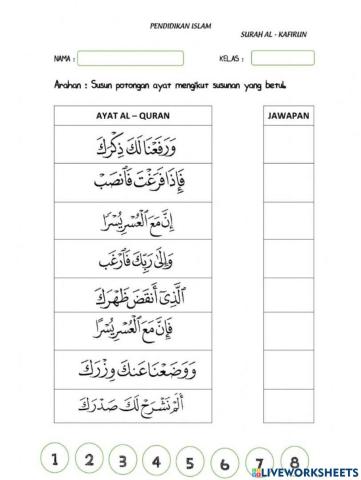 PENDIDIKAN ISLAM
SURAH AL - KAFIRUN
NAMA :
KELAS :
Arahan : Susun potongan ayat mengikut susunan yang betul.
AYAT AL – QURAN
JAWAPAN
وَرَفَعْنَا لَكَ ذِكْرَكَ
فَإِذَا فَرَغْتَ فَٱنصَبْ
إِنَّ مَعَ ٱلْعُسْرِ يُسْرًا
وَإِلَىٰ رَبِّكَ فَٱرْغَب
ٱلَّذِىٓ أَنقَضَ ظَهْرَكَ
فَإِنَّ مَعَ ٱلْعُسْرِ يُسْرًا
وَوَضَعْنَا عَنكَ وِزْرَكَ
أَلَمْ نَشْرَحْ لَكَ صَدْرَكَ
1 2 3 4 5 6 7 8
LIVEWORKSHEETS